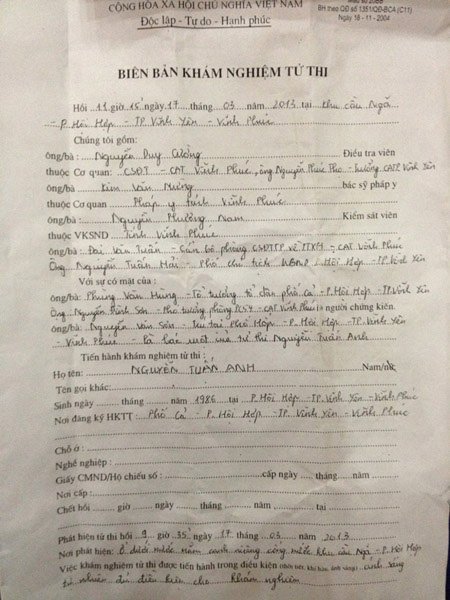 CỘNG HÒA XÃ HỘI CHỦ NGHĨA VIỆT NAM
Độc lập - Tự do - Hạnh phúc
BH theo QĐ số 1351/QĐ-BCA (C11)
Ngày 18 - 11 - 2004
BIÊN BẢN KHÁM NGHIỆM TỬ THI
Hồi 11 giờ 15 ngày 17 tháng 03 năm 2013 tại khu cầu Ngã
- P. Hội Hợp - TP Vĩnh Yên - Vĩnh Phúc
Chúng tôi gồm:
ông/bà: Nguyễn Duy Cường Điều tra viên
thuộc Cơ quan: CSĐT - CAT Vĩnh Phúc, ông Nguyễn Phúc Pho - trưởng CATP Vĩnh Yên
ông/bà: Kim Văn bác sỹ pháp y
thuộc Cơ quan: Pháp y tỉnh Vĩnh Phúc
ông/bà: Nguyễn Phương Nam Kiểm sát viên
thuộc VKSND Tỉnh Vĩnh Phúc
ông/bà: Đại Văn Tuấn - Cán bộ phòng CSĐTTP về TTXH - CAT Vĩnh Phúc
Ông Nguyễn Tuấn Hải - Phó chủ tịch UBND P. Hội Hợp - TP Vĩnh Yên
Với sự có mặt của:
ông/bà: Phùng Văn Hùng - Tổ trưởng tổ dân phố cả - P. Hội Hợp - TP Vĩnh Yên
Ông Nguyễn Sơn - Phó trưởng phòng - CAT Vĩnh Phúc là người chứng kiến.
ông/bà: Nguyễn Văn Sơn - trú tại phố Hợp - P. Hội Hợp - TP Vĩnh Yên
- Vĩnh Phúc - là bác ruột của tử thi Nguyễn Tuấn Anh
Tiến hành khám nghiệm tử thi:
Họ tên: NGUYỄN TUẤN ANH Nam/nữ
Tên gọi khác:
Sinh ngày tháng năm 1986 tại P. Hội Hợp - TP Vĩnh Yên - Vĩnh Phúc
Nơi đăng ký HKTT: Phố Cả - P. Hội Hợp - TP Vĩnh Yên - Vĩnh Phúc
Chỗ ở:
Nghề nghiệp:
Giấy CMND/Hộ chiếu số: cấp ngày tháng năm
Nơi cấp:
Chết hồi giờ ngày tháng năm
Phát hiện tử thi hồi 9 giờ 35 ngày 17 tháng 03 năm 2013
Nơi phát hiện: Ở dưới nước cạnh cống nước khu cầu Ngã - P. Hội Hợp
Việc khám nghiệm tử thi được tiến hành trong điều kiện (thời tiết, khí hậu, ánh sáng) ánh sáng
tự nhiên đủ điều kiện cho khám nghiệm